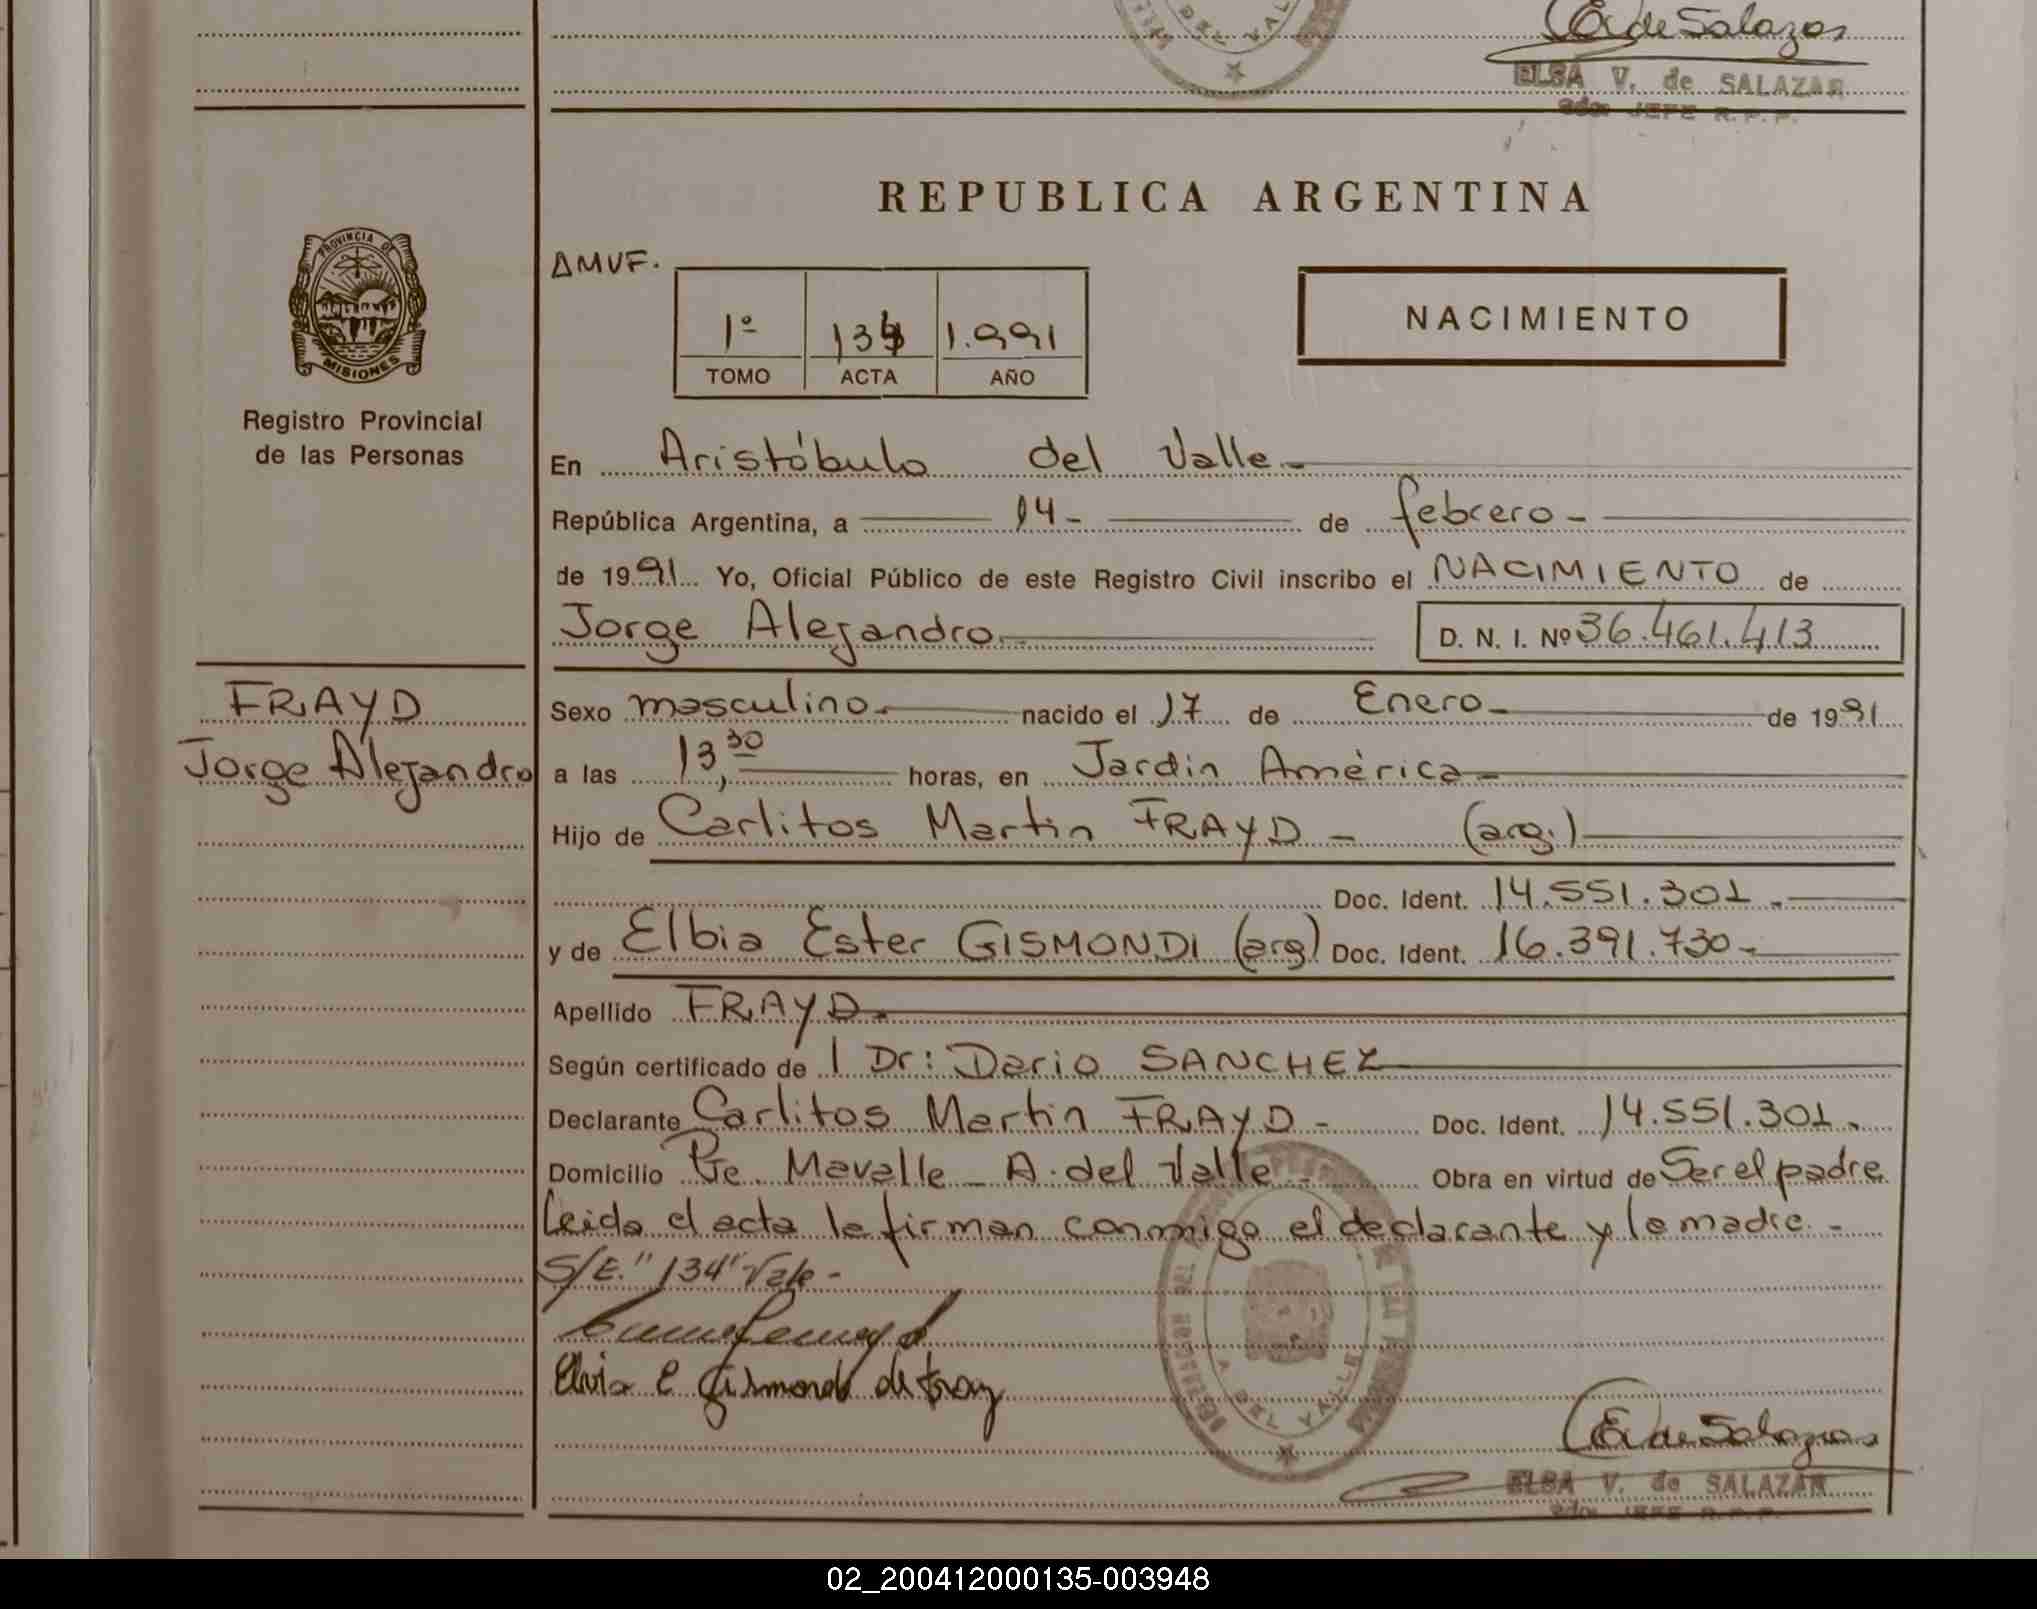 DEL VALLE
E de Salazar
ELSA V. de SALAZAR
JEFE R.P.P.
REPUBLICA ARGENTINA
PROVINCIA DE
MISIONES
Registro Provincial
de las Personas
AMVF.
1º 134 1.991
TOMO ACTA AÑO
NACIMIENTO
En Aristóbulo del Valle.-
República Argentina, a 14- de febrero-
de 1991 Yo, Oficial Público de este Registro Civil inscribo el NACIMIENTO de
Jorge Alejandro. D. N. I. Nº 36.461.413
FRAYD
Jorge Alejandro
Sexo masculino.- nacido el 17 de Enero- de 1991
a las 13,30 horas, en Jardin América-
Hijo de Carlitos Martin FRAYD - (arg.)
Doc. Ident. 14.551.301.-
y de Elbia Ester GISMONDI (arg) Doc. Ident. 16.391.730-
Apellido FRAYD.-
Según certificado de l Dr: Dario SANCHEZ
Declarante Carlitos Martin FRAYD - Doc. Ident. 14.551.301.
Domicilio Pje. Mavalle - A. del Valle - Obra en virtud de Ser el padre
Leida el acta la firman conmigo el declarante y la madre. -
S/E." 134" Vale -
Elvia E Gismondi de Fray
A. DEL VALLE
E de Salazar
ELSA V. de SALAZAR
JEFE R.P.P.
02_200412000135-003948